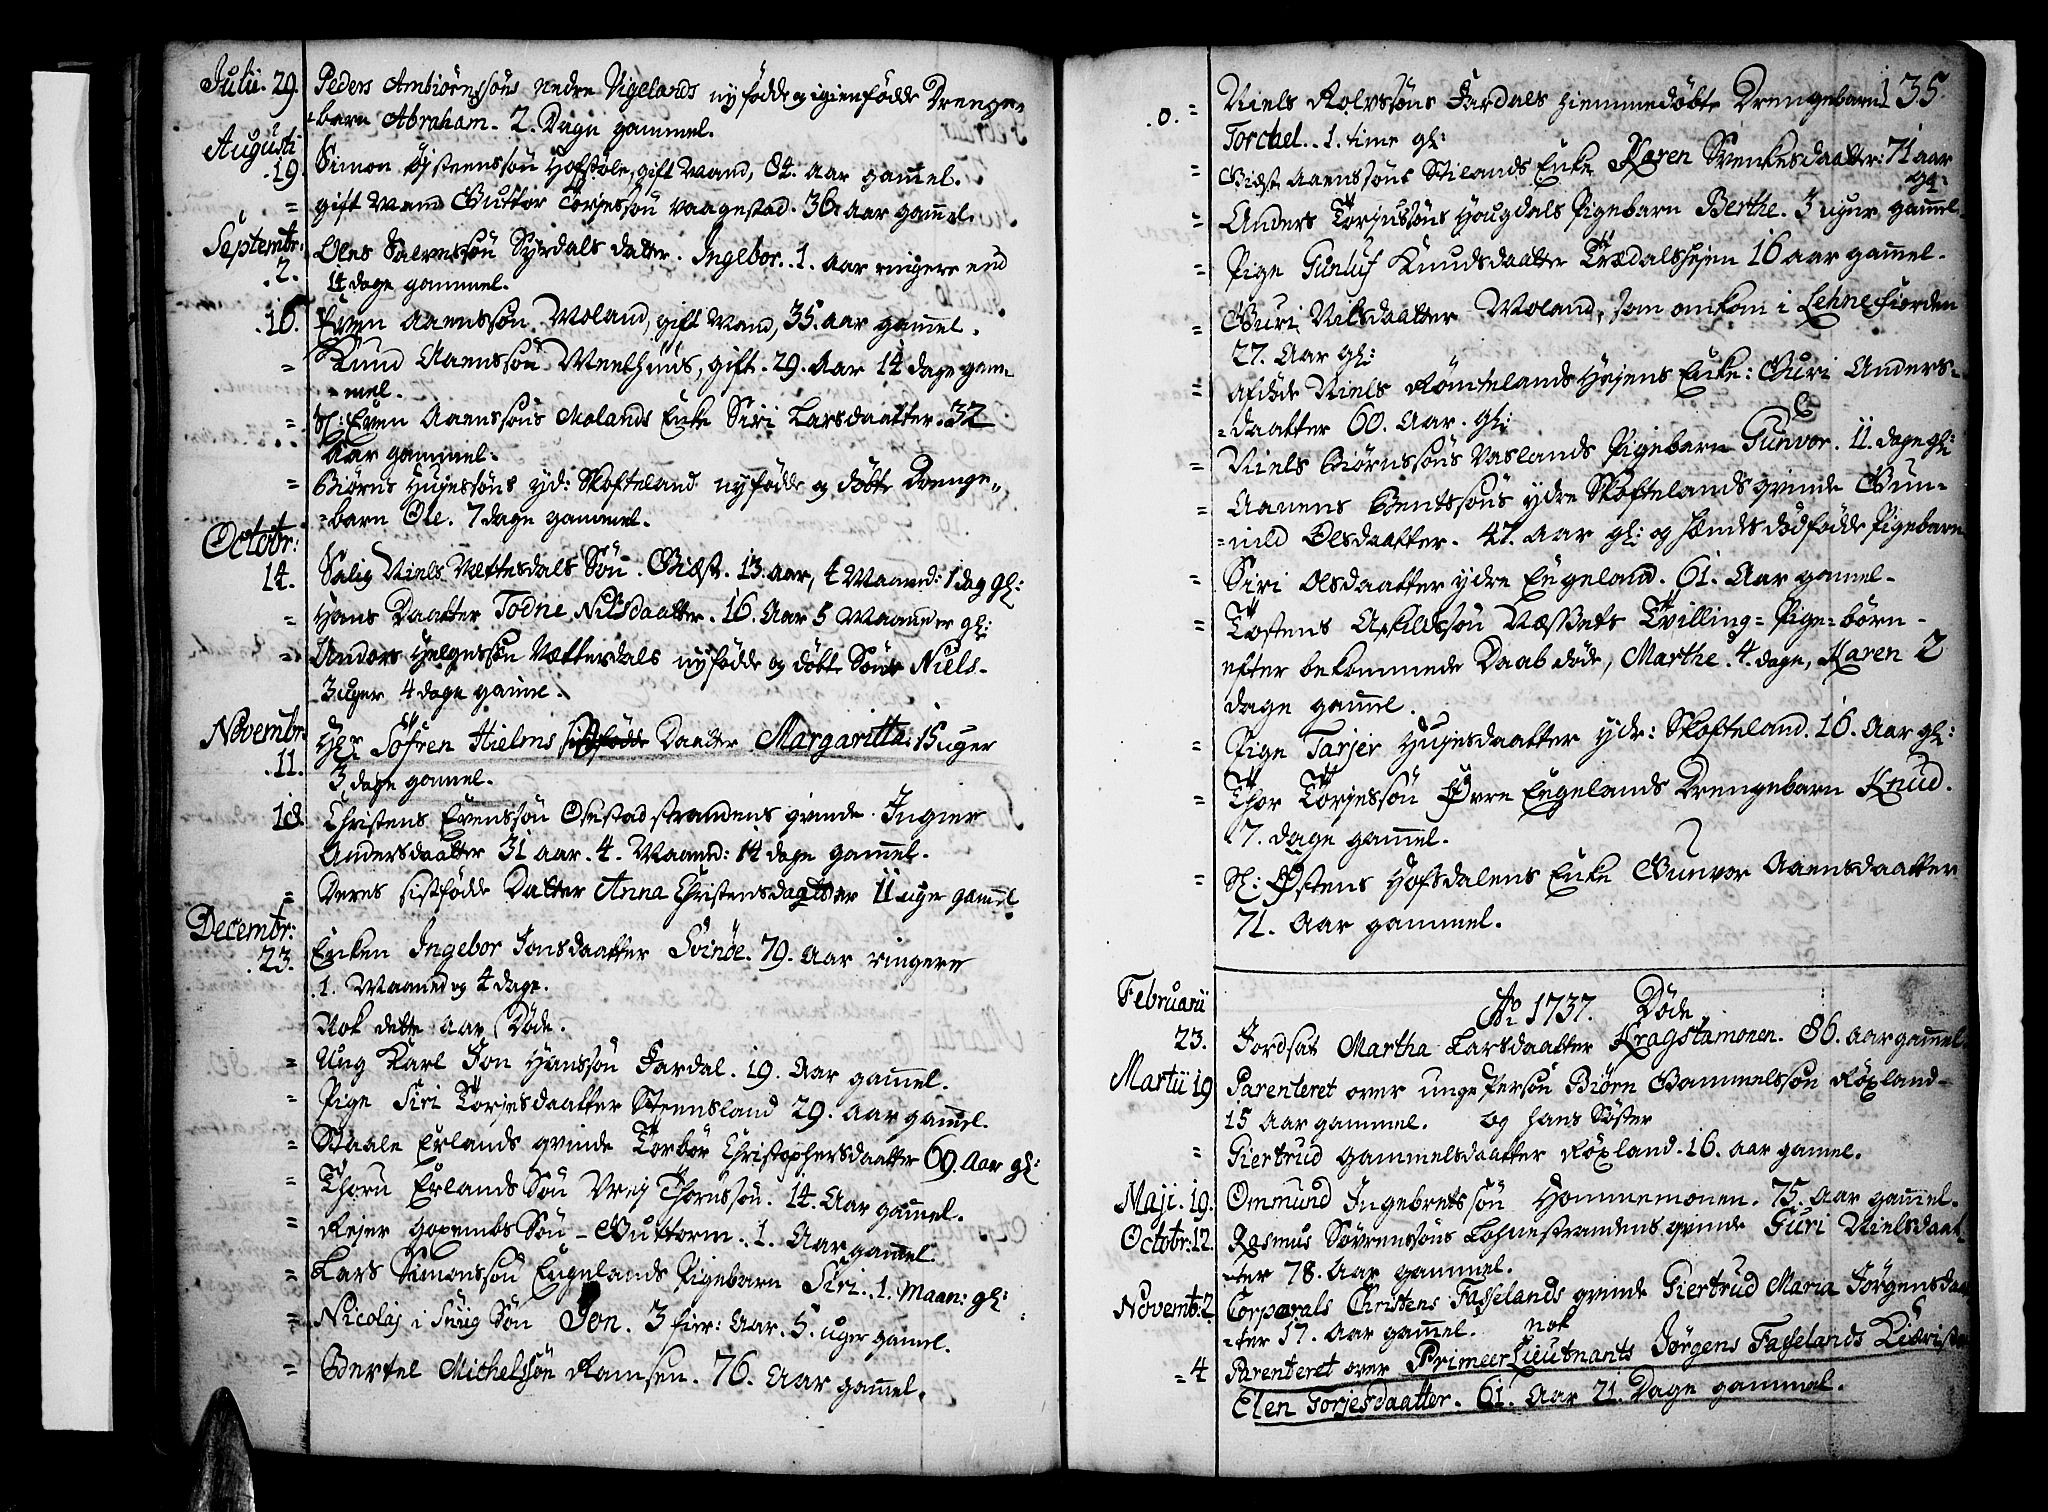 Julii. 29. Peders Ambiörnssöns Nedre Vigelands nyfödde og igienfödde Drenge-
barn Abraham. 2. Dage gammel.
Augusti
19. Simon Ÿsteenssön Hofstöle, gift Mand, 84. Aar gam̃el.
= gift Mand Guttor Torjessön Vaagestad. 36. Aar gam̃el.
Septembr:
2. Oles Salvessön Syrdals datter. Ingebor. 1. Aar ringere end
14 dage gammel.
16. Even Aaenssön Moland, gift Mand, 35. aar gam̃el.
= Knud Aaenssön Meelhuus, gift. 29. Aar 14 dage gam-
=mel.
= Sl: Even Aaenssöns Molands Enke Siri Larsdaatter. 32
Aar gammel.
= Biörns Hujessöns yd: Skofteland nyfödde og döbte Drenge=
=barn Ole. 7 dage gammel.
Octobr:
14. Salig Niels Vettesdals Sön. Giæst. 13 aar, 4 Maaned: 1 dag gl:
= Hans Daatter Todne Nilsdaatter. 16. Aar 5 Maaneder gl:
= Anders Helgessön Vættesdals nyfödde og döbte Sön Niels.
3 uger 4 dage gam̃el.
Novembr:
11. Hr Söfren Hielms sistfödde Daatter Margaritta: 15 uger
3 dage gammel.
18. Christens Evenssön Osestadstrandens qvinde Ingier
Andersdaatter 31 aar. 4. Maaned: 14 dage gam̃el.
= Deres sistfödde Datter Anna Christensdaatter 11 uger gam̃el
Decembr:
23. Enken Ingebor Jonsdaatter Svinöe. 79. Aar ringere
1. Maaned og 4 dage.
Nok dette aar Döde.
= Ung Karl Jon Hanssön Fardal. 19. Aar gam̃el.
= Pige Siri Torjesdaatter Steensland 29. aar gam̃el.
= Staale Erlands qvinde Torbör Christophersdaatter 60. Aar gl:
= Thoru Erlands Sön Vrej Thorussön. 14. Aar gam̃el.
= Rejer Sön = Guttorm. 1. Aar gam̃el.
= Lars Simonssön Eugelands Pigebarn Siri. 1. Maan: gl:
= Nicolaj i Sön Jon. 3 fier: Aar. 5. uger gam̃el.
= Bertel Michelssön Ramsen. 76. Aar gam̃el.
135
.0.= Niels Rolvssöns Fardals hiemmedöbte Drengebarn
Torchel. 1. time gl:
= Giæst Aaenssöns Stilands Enke Karen Svenkesdaatter: 71 aar
gl:
= Anders Torjussöns Haugdals Pigebarn Berthe. 3 uger gam̃el.
= Pige Gunluf Knudsdaatter Trædalshejen 16 aar gam̃el.
= Guri Nilsdaatter Moland, som omkom i Lehnefiorden
27. Aar gl:
= afdöde Niels Röntelands Hejens Enke: Guri Anders=
=daatter 60. Aar. gl:
= Niels Biörnssöns Vaslands Pigebarn Gunvor. 11. dage gl:
= Aanens Bentssöns ydre Skoftelands qvinde Gun=
=nild Olsdaatter. 47. Aar gl: og hendes dödfödde Pigebarn
= Siri Olsdaatter ydre Eugeland. 61. Aar gam̃el.
= Tostens Askildssön Næssets Tvilling= Pige=börn.
efter bekommede Daab döde, Marthe. 4. dage, Karen 2
dage gam̃el.
= Pige Tarjer Hujesdaatter ydr: Skofteland. 16. Aar gl:
= Thor Torjessön Övre Eugelands Drengebarn Knud.
7. dage gam̃el.
= Sl: Östens Hofsdalens Enke Gunvor Aaensdaatter
71. Aar gammel.
Ao 1737. Döde
Februarii
23. Jordsat Martha Larsdaatter Kragstamonen. 86. aar gam̃el.
Martii 19 Parenteret over unge Persön Biörn Gammelssön Röxland.
15 Aar gammel. og hans Söster
= Giertrud Gammelsdaatter Röxland. 16. aar gam̃el.
Maji. 19. Ommund Ingebretssön Hommemonen. 75. Aar gam̃el.
Octobr: 12. Rasmus Sövrenssöns Lohnestrandens qvinde Guri Nielsdaat
=ter 78. Aar gammel.
Novembr: 2 Corporals Christens Fasselands qvinde Giertrud Maria Jörgensdaa
=ter 17. Aar gam̃el. nok
=4 Parenteret over Primeer Lieutnants Jörgens Fasselands Kiæriste
Elen Torjesdaatter. 61. Aar 21. Dage gammel.